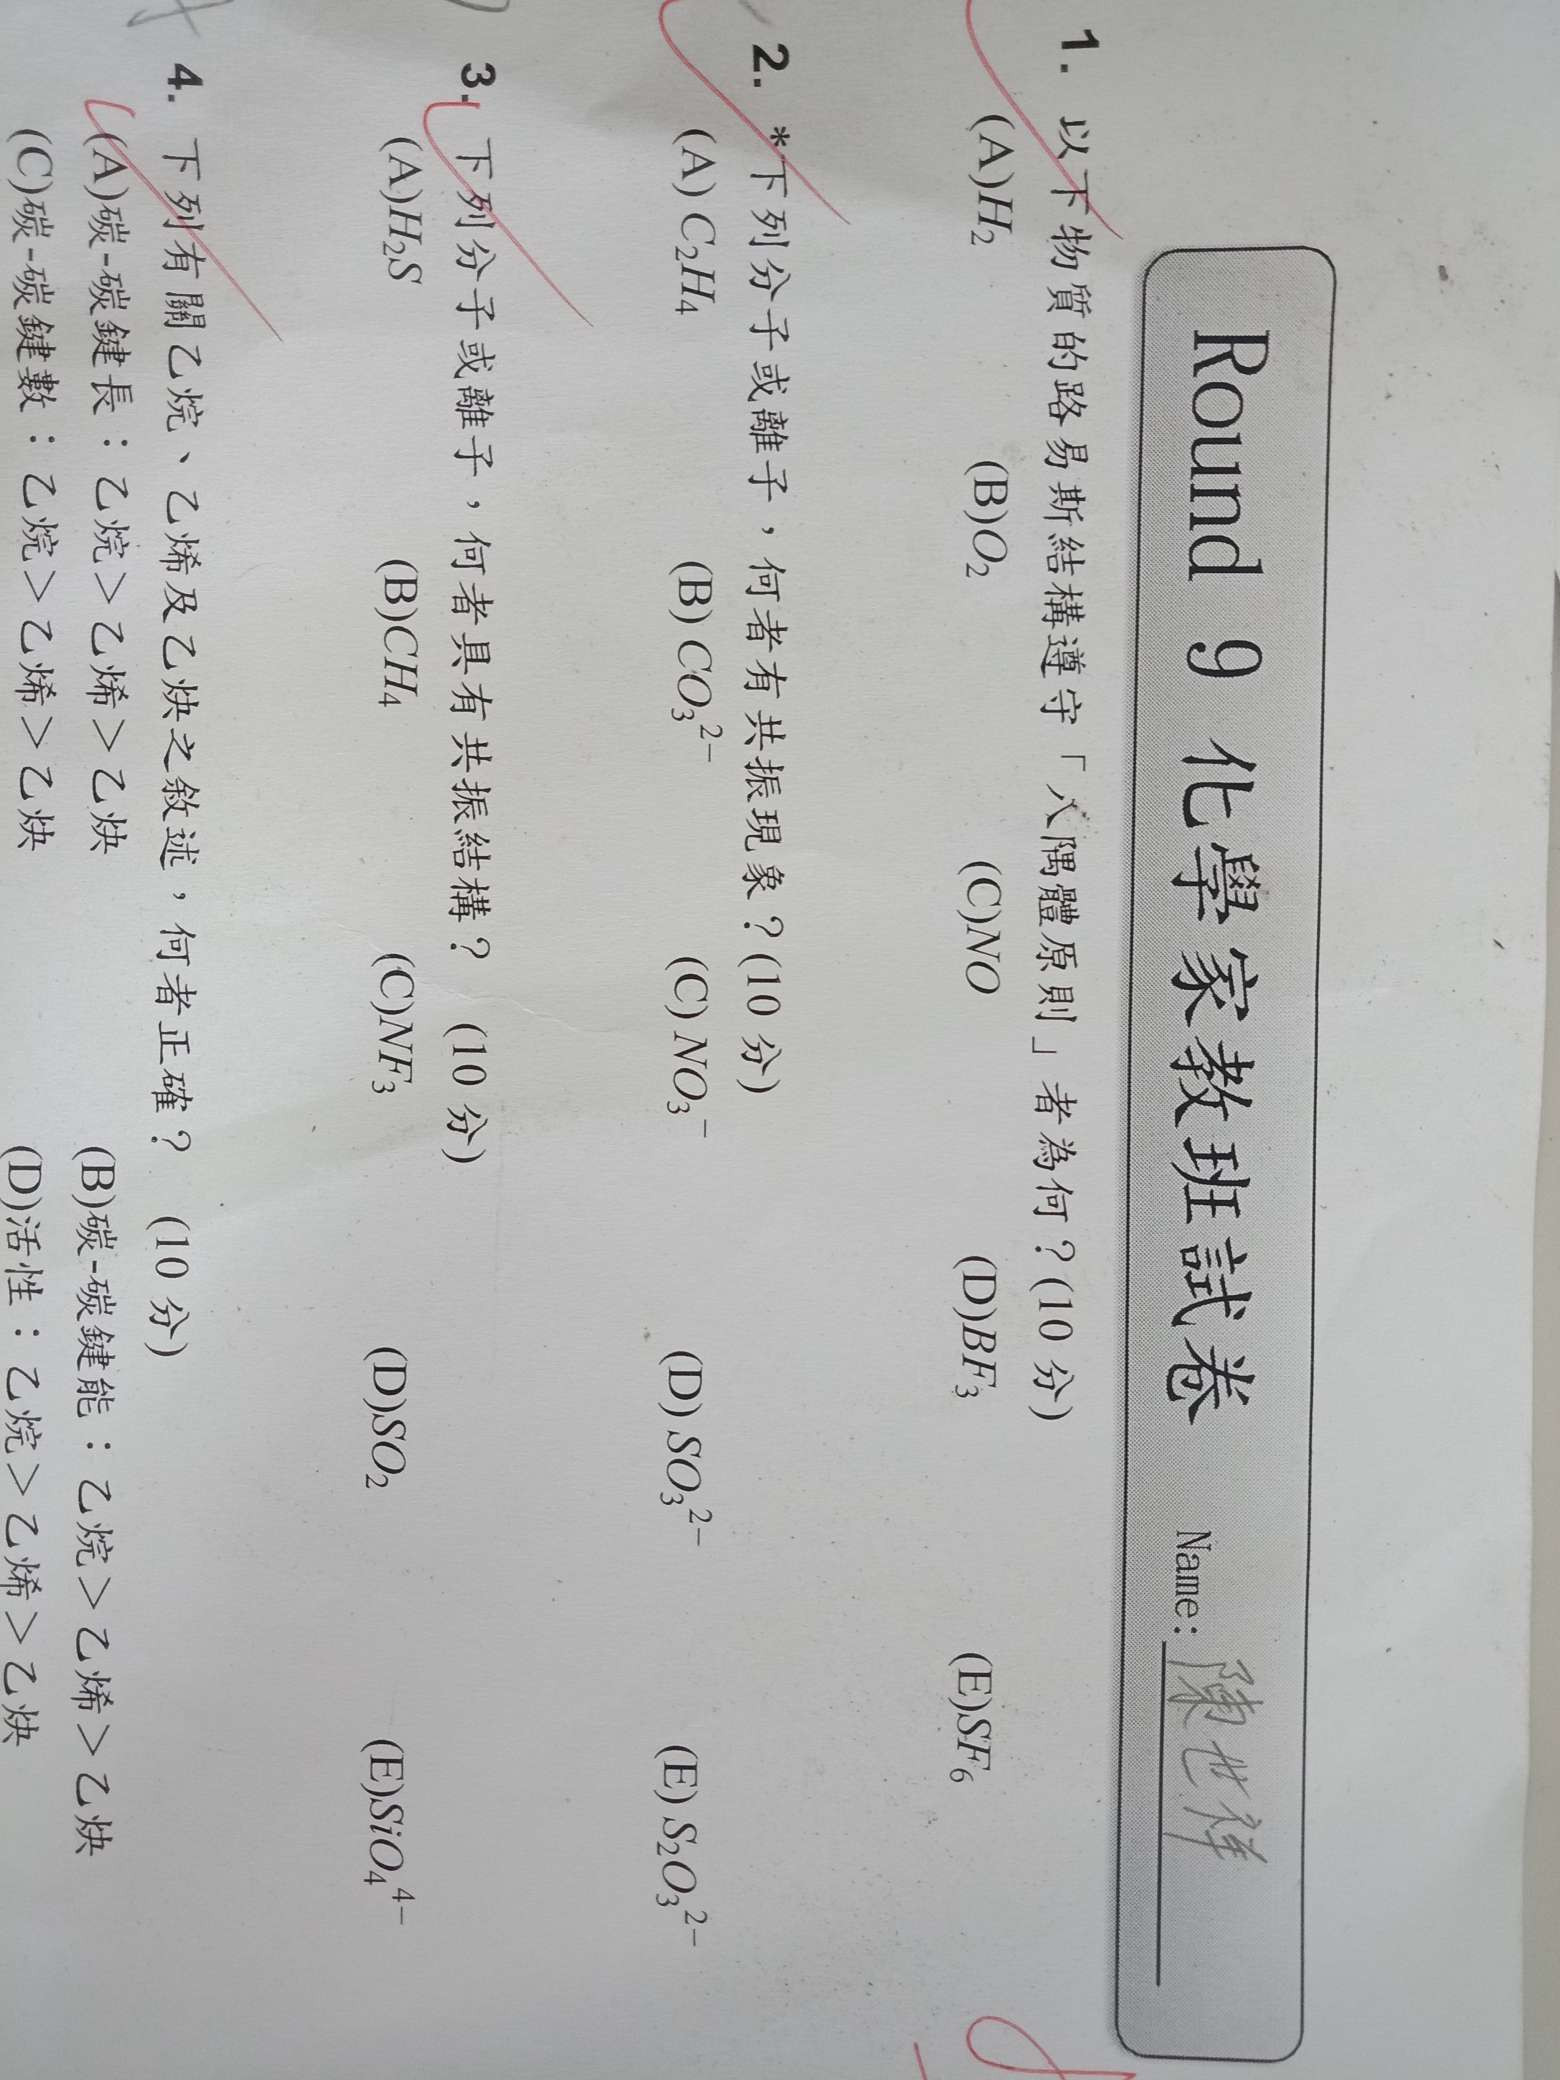 Round 9 化學家教班試卷 Name: 陳世祥
1. 以下物質的路易斯結構遵守「八隅體原則」者為何？(10 分)
(A)H₂ (B)O₂ (C)NO (D)BF₃ (E)SF₆
2. *下列分子或離子，何者有共振現象？(10 分)
(A) C₂H₄ (B) CO₃²⁻ (C) NO₃⁻ (D) SO₃²⁻ (E) S₂O₃²⁻
3. 下列分子或離子，何者具有共振結構？ (10 分)
(A)H₂S (B)CH₄ (C)NF₃ (D)SO₂ (E)SiO₄⁴⁻
4. 下列有關乙烷、乙烯及乙炔之敘述，何者正確？ (10 分)
(A)碳-碳鍵長：乙烷＞乙烯＞乙炔 (B)碳-碳鍵能：乙烷＞乙烯＞乙炔
(C)碳-碳鍵數：乙烷＞乙烯＞乙炔 (D)活性：乙烷＞乙烯＞乙炔